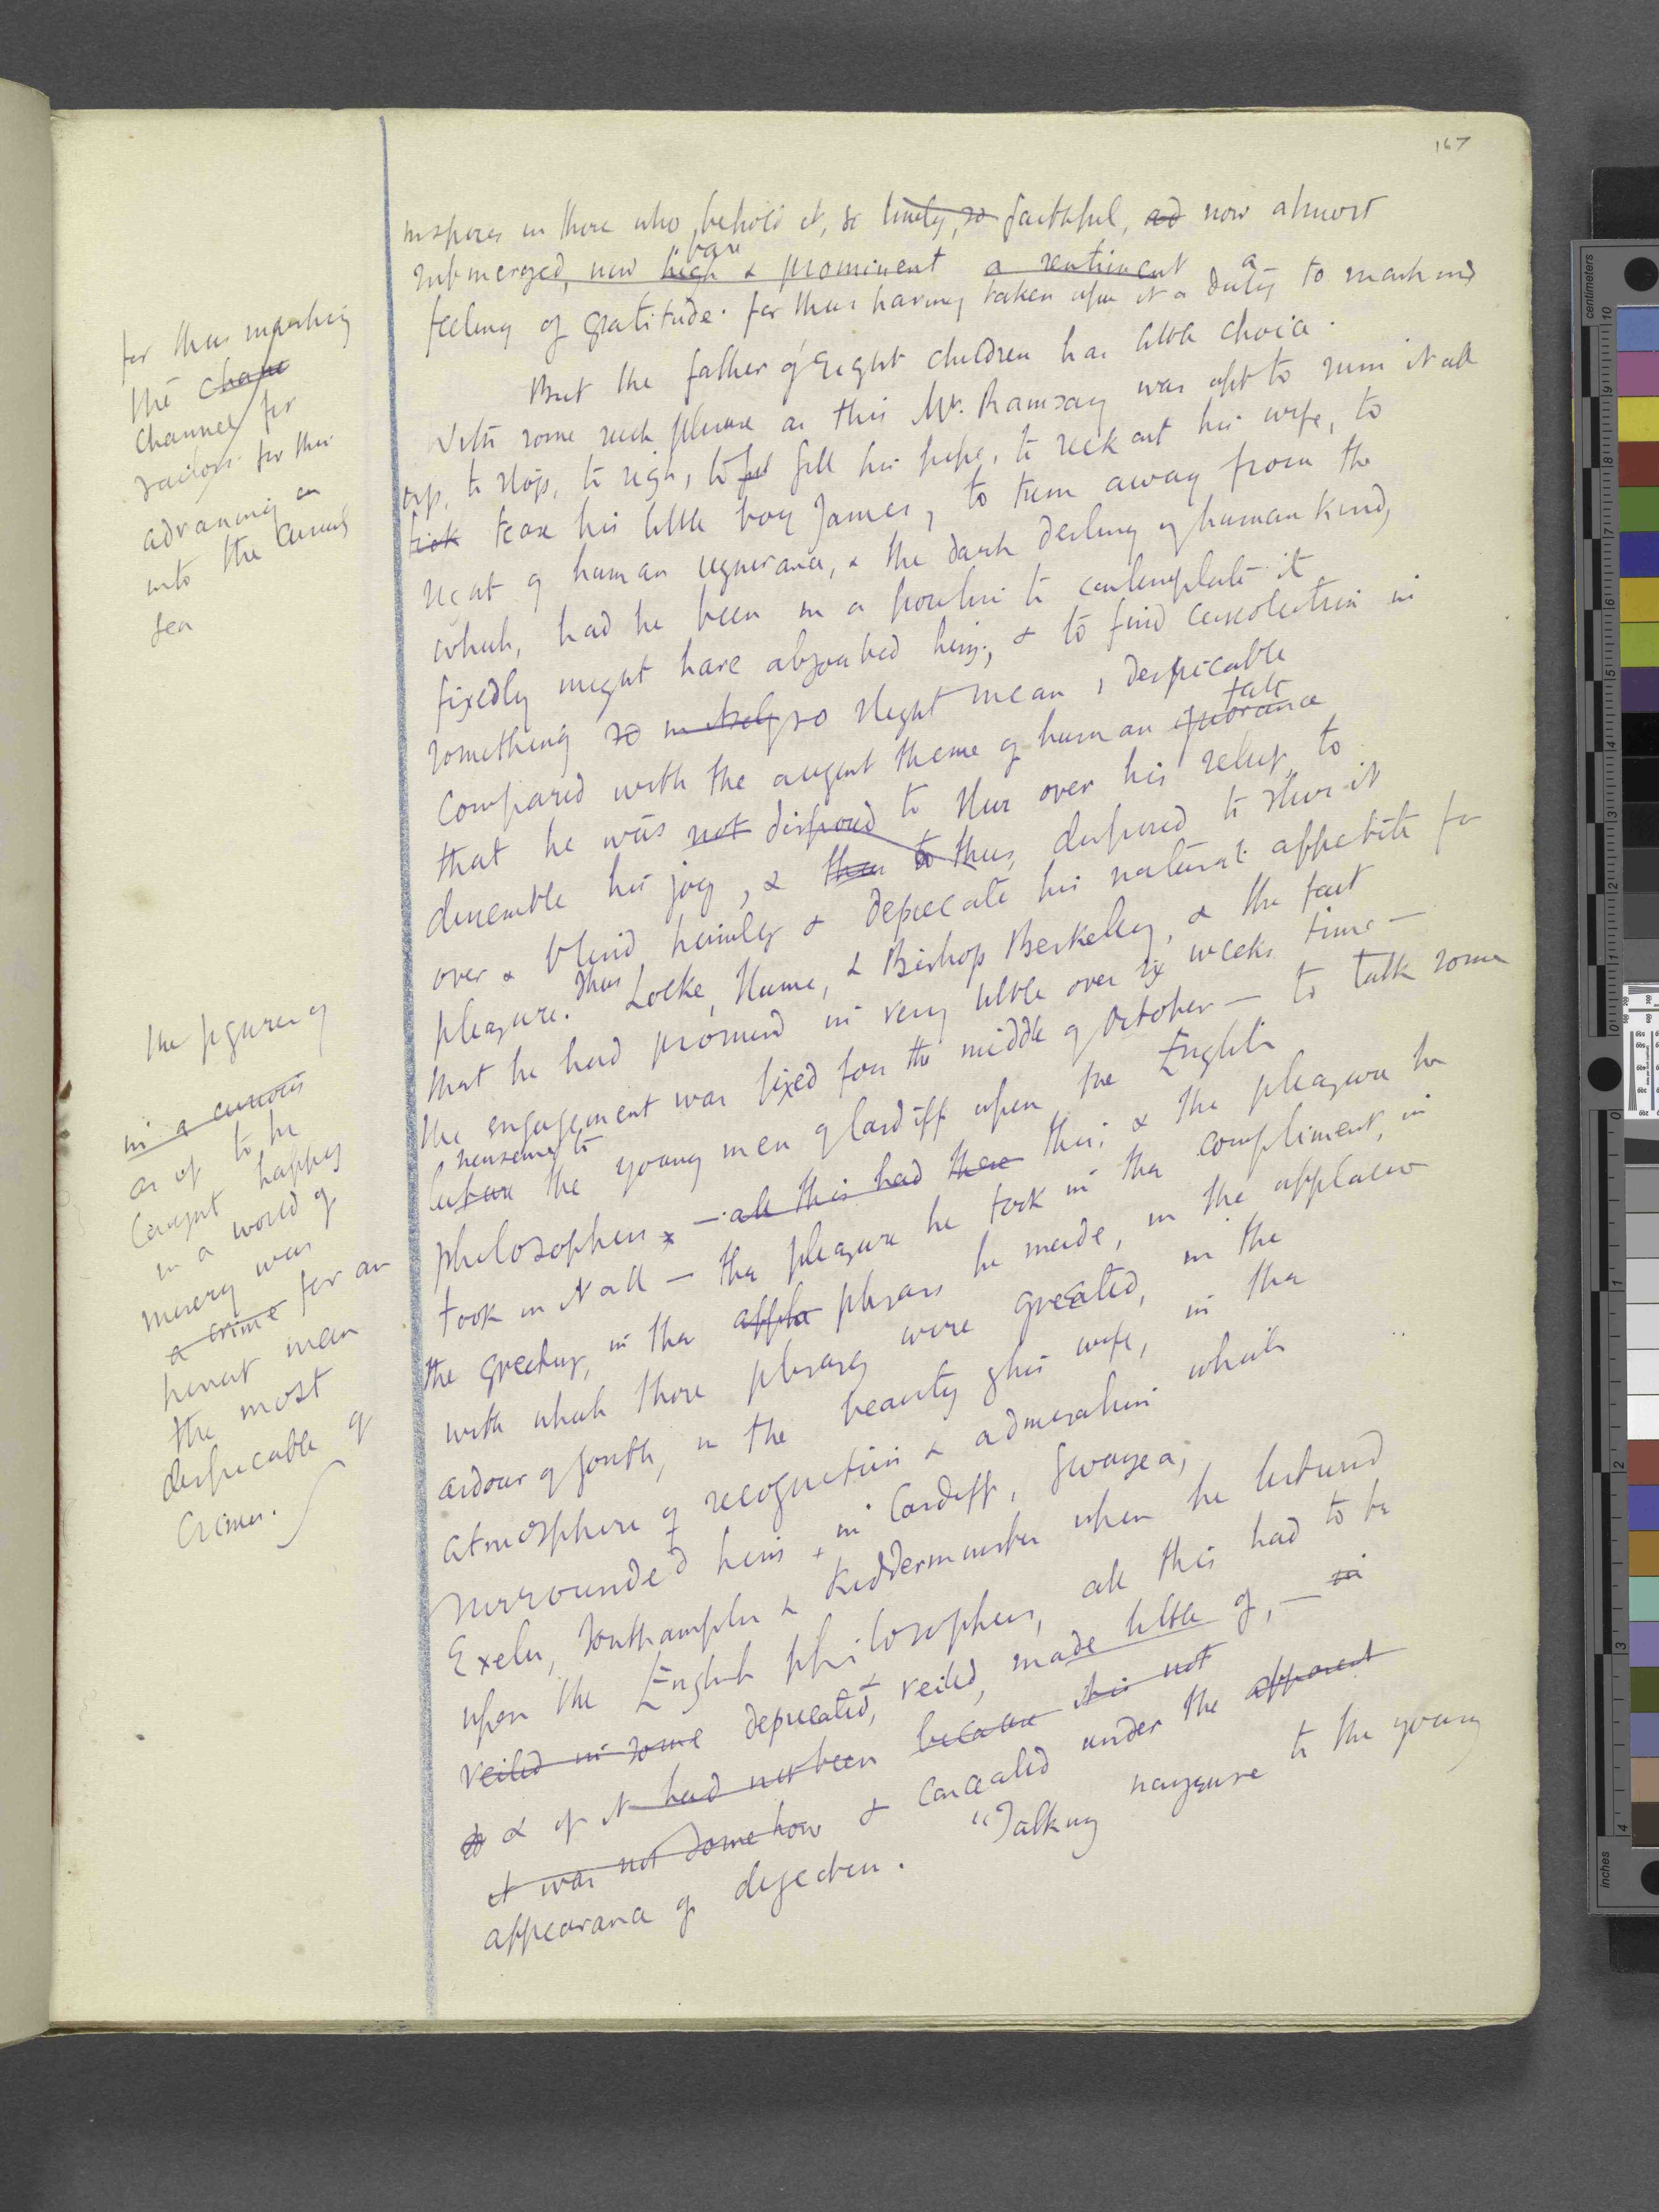 167
inspires in those who behold it, so lonely, so faithful, and now almost
submerged, now high bare & prominent a sentiment a
feeling of gratitude. for thus having taken upon it a duty to mankind
But the father of eight children has little choice.
With some such phrase as this Mr. Ramsay was apt to sum it all
up, to stop, to sigh, to fill his pipe, to seek out his wife, to
tease his little boy James, to turn away from the
sight of human ignorance, & the dark destiny of human kind,
which, had he been in a position to contemplate it
fixedly might have absorbed him; & to find consolation in
something so in itself so slight mean, despicable
compared with the august theme of human ignorance fate
that he was not disposed to slur over his relief, to
dissemble his joy, & then to thus, disposed to slur it
over & blind himself & deprecate his natural appetite for
pleasure. Thus Locke, Hume, & Bishop Berkeley, & the fact
that he had promised in very little over six weeks time –
the engagement was fixed for the middle of October – to talk some
nonsense to
before the young men of Cardiff upon the English
philosophers, – all this had there this; & the pleasure he
took in it all – the pleasure he took in the compliment, in
the greeting, in the appla phrases he made, in the applause
with which those phrases were greeted, in the
ardour of youth, in the beauty of his wife, in the
atmosphere of recognition & admiration which
surrounded him, in Cardiff, Swansea,
Exeter, Southampton & Kidderminster when he lectured
upon the English philosophers, all this had to be
veiled in some deprecated, veiled, made little of, – in
& of it had not been because it is not
it was not somehow & concealed under the apparent
appearance of dejection. "Talking nonsense to the young
for thus marking
the chane
channel for
sailors for their
advancing on
into the
sea
the figure of
in a curious
as if to be
caught happy
in a world of
misery was
a crime for an
honest man
the most
despicable of
crimes.